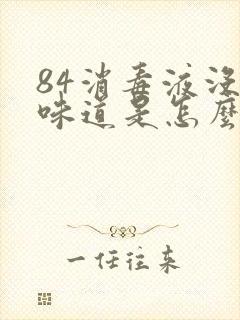 84消毒液没
味道是怎麽
一任往来